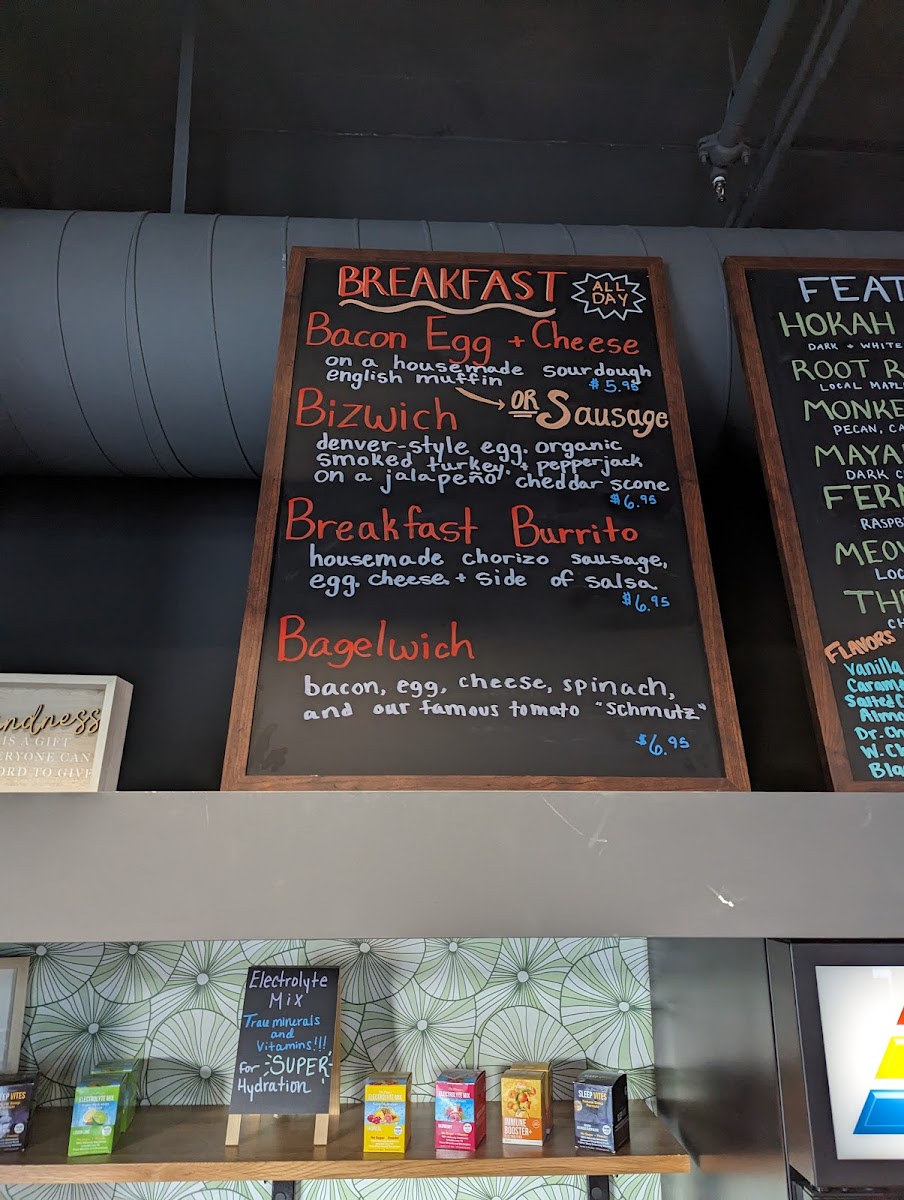 BREAKFAST
ALL
DAY
Bacon Egg + Cheese
on a housemade sourdough
english muffin
$5.95
OR Sausage
Bizwich
denver-style egg, organic
smoked turkey, + pepperjack
on a jalapeño cheddar scone
$6.95
Breakfast Burrito
housemade chorizo sausage,
egg, cheese + side of salsa
$6.95
Bagelwich
bacon, egg, cheese, spinach,
and our famous tomato "schmutz"
$6.95
FEAT
HOKAH
DARK + WHITE
ROOT R
LOCAL MAPL
MONKE
PECAN, CA
MAYA
DARK C
FER
RASPB
MEOW
LOC
TH
CH
FLAVORS
Vanilla
Carame
Salted C
Almo
Dr. Ch
W. Ch
Bla
ndness
IS A GIFT
ERYONE CAN
ORD TO GIVE
Electrolyte
Mix
Trace minerals
and
Vitamins!!!
for "SUPER"
Hydration
SLEEP VITES
ELECTROLYTE MIX
ELECTROLYTE MIX
IMMUNE
BOOSTER+
SLEEP VITES